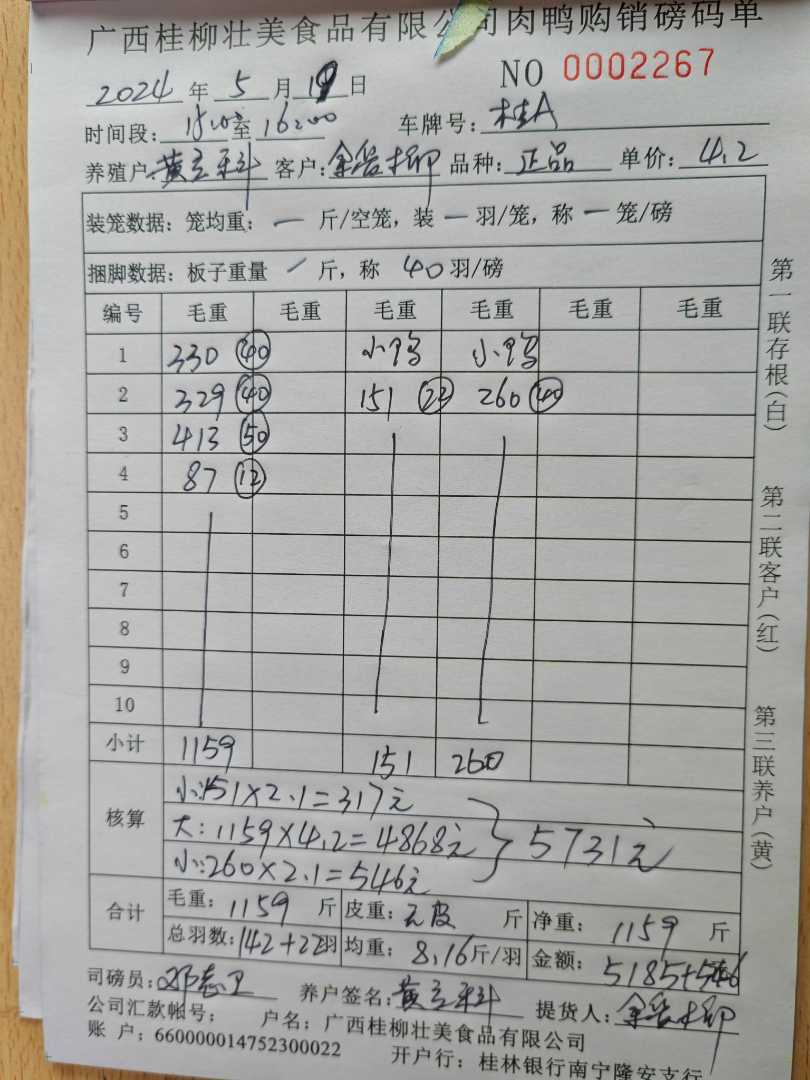 广西桂柳壮美食品有限公司肉鸭购销磅码单
NO 0002267
2024 年 5 月 19 日
时间段: 15:00 至 16:00 车牌号: 桂A
养殖户: 黄立科 客户: 品种: 正品 单价: 4.2
装笼数据: 笼均重: 一 斤/空笼, 装 一 羽/笼, 称 一 笼/磅
捆脚数据: 板子重量 / 斤, 称 40 羽/磅
编号 毛重 毛重 毛重 毛重 毛重 毛重
1 330 40 小鸭 小鸭
2 329 40 151 22 260 40
3 413 50
4 87 12
5
6
7
8
9
10
小计 1159 151 260
核算
小:151×2.1=317元
大:1159×4.2=4868元
小:260×2.1=546元
5731元
合计
毛重: 1159 斤 皮重: 无皮 斤 净重: 1159 斤
总羽数: 142+22羽 均重: 8.16斤/羽 金额: 5185+546
司磅员: 邓志卫 养户签名: 黄立科 提货人:
公司汇款帐号: 户名: 广西桂柳壮美食品有限公司
账 户: 660000014752300022 开户行: 桂林银行南宁隆安支行
第一联存根(白) 第二联客户(红) 第三联养户(黄)